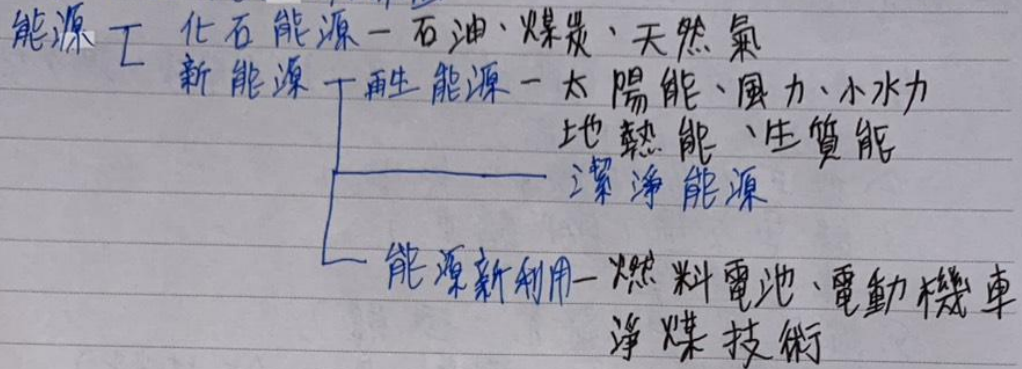 能源 化石能源－石油、煤炭、天然氣
新能源 再生能源－太陽能、風力、小水力
地熱能、生質能
潔淨能源
能源新利用－燃料電池、電動機車
淨煤技術